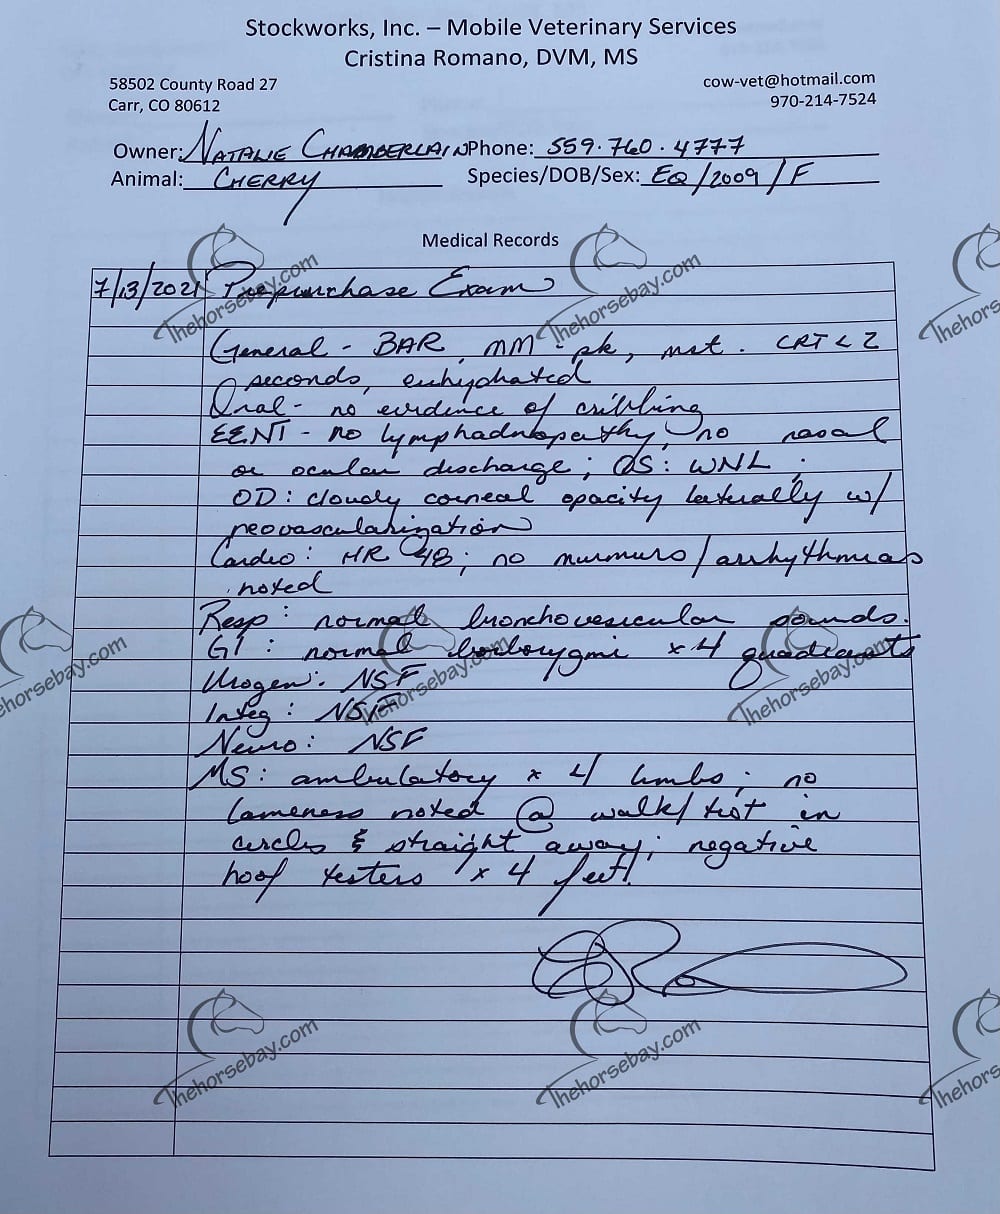 Stockworks, Inc. – Mobile Veterinary Services
Cristina Romano, DVM, MS
58502 County Road 27
Carr, CO 80612
cow-vet@hotmail.com
970-214-7524
Owner: NATALIE CHAMBERLAIN Phone: 559.760.4777
Animal: CHERRY Species/DOB/Sex: EQ/2009/F
Medical Records
7/13/2021 Prepurchase Exam
General - BAR, MM - pk, mst. CRT < 2
seconds, euhydrated
Oral - no evidence of cribbing
EENT - no lymphadnopathy, no nasal
or ocular discharge; OS: WNL;
OD: cloudy corneal opacity laterally w/
neovascularization
Cardio: HR 48; no murmurs/arrhythmias
noted
Resp: normal bronchovesicular sounds.
GI: normal borborygmi x 4 quadrants
Urogen: NSF
Integ: NSF
Neuro: NSF
MS: ambulatory x 4 limbs; no
lameness noted @ walk/trot in
circles & straight away; negative
hoof testers x 4 feet.
Thehorsebay.com
Thehorsebay.com
Thehors
hehorsebay.com
Thehorsebay.com
Thehorsebay.com
Thehorsebay.com
Thehorsebay.com
Thehors